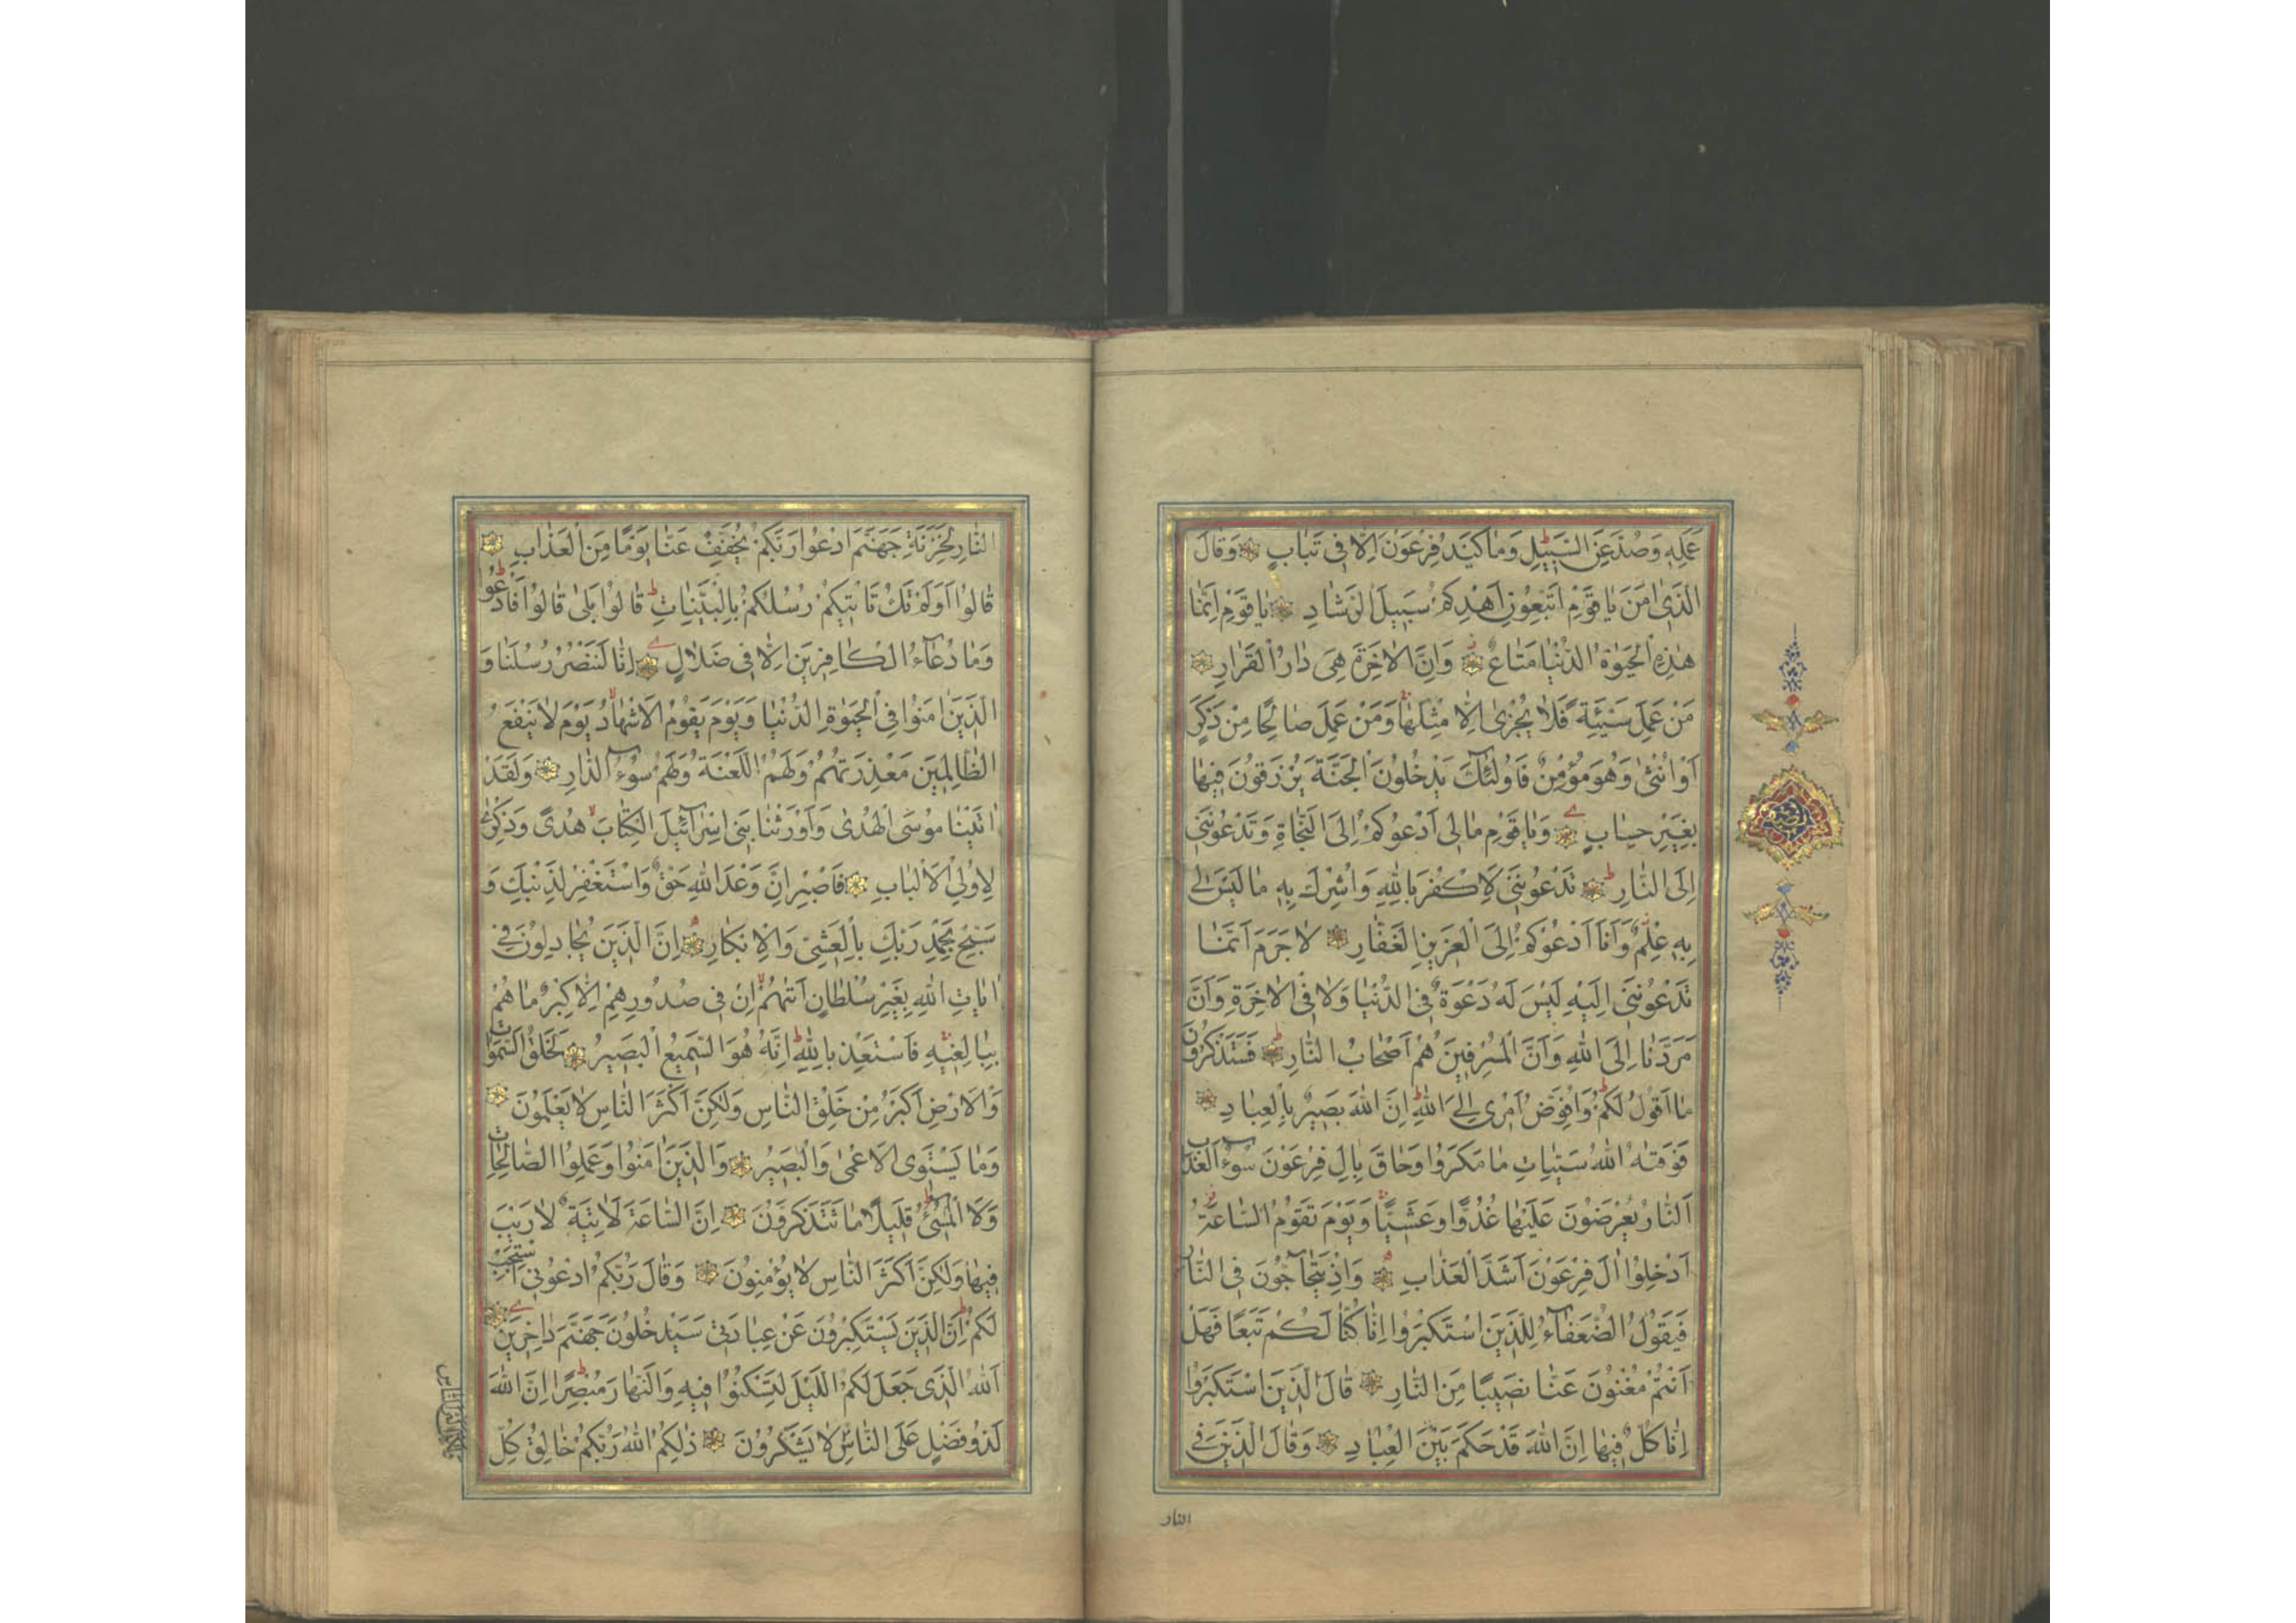 عَمَلِهِ وَصُدَّ عَنِ السَّبِيلِ وَمَا كَيْدُ فِرْعَوْنَ اِلَّا فِي تَبَابٍ وَقَالَ
الَّذِي اٰمَنَ يَا قَوْمِ اتَّبِعُونِ اَهْدِكُمْ سَبِيلَ الرَّشَادِ يَا قَوْمِ اِنَّمَا
هٰذِهِ الْحَيٰوةُ الدُّنْيَا مَتَاعٌ وَاِنَّ الْاٰخِرَةَ هِيَ دَارُ الْقَرَارِ
مَنْ عَمِلَ سَيِّئَةً فَلَا يُجْزٰى اِلَّا مِثْلَهَا وَمَنْ عَمِلَ صَالِحًا مِنْ ذَكَرٍ
اَوْ اُنْثٰى وَهُوَ مُؤْمِنٌ فَاُولٰئِكَ يَدْخُلُونَ الْجَنَّةَ يُرْزَقُونَ فِيهَا
بِغَيْرِ حِسَابٍ وَيَا قَوْمِ مَا لِي اَدْعُوكُمْ اِلَى النَّجَاةِ وَتَدْعُونَنِي
اِلَى النَّارِ تَدْعُونَنِي لِاَكْفُرَ بِاللّٰهِ وَاُشْرِكَ بِهِ مَا لَيْسَ لِي
بِهِ عِلْمٌ وَاَنَا اَدْعُوكُمْ اِلَى الْعَزِيزِ الْغَفَّارِ لَا جَرَمَ اَنَّمَا
تَدْعُونَنِي اِلَيْهِ لَيْسَ لَهُ دَعْوَةٌ فِي الدُّنْيَا وَلَا فِي الْاٰخِرَةِ وَاَنَّ
مَرَدَّنَا اِلَى اللّٰهِ وَاَنَّ الْمُسْرِفِينَ هُمْ اَصْحَابُ النَّارِ فَسَتَذْكُرُونَ
مَا اَقُولُ لَكُمْ وَاُفَوِّضُ اَمْرِي اِلَى اللّٰهِ اِنَّ اللّٰهَ بَصِيرٌ بِالْعِبَادِ
فَوَقٰيهُ اللّٰهُ سَيِّئَاتِ مَا مَكَرُوا وَحَاقَ بِاٰلِ فِرْعَوْنَ سُوءُ الْعَذَابِ
اَلنَّارُ يُعْرَضُونَ عَلَيْهَا غُدُوًّا وَعَشِيًّا وَيَوْمَ تَقُومُ السَّاعَةُ
اَدْخِلُوا اٰلَ فِرْعَوْنَ اَشَدَّ الْعَذَابِ وَاِذْ يَتَحَاجُّونَ فِي النَّارِ
فَيَقُولُ الضُّعَفَاءُ لِلَّذِينَ اسْتَكْبَرُوا اِنَّا كُنَّا لَكُمْ تَبَعًا فَهَلْ
اَنْتُمْ مُغْنُونَ عَنَّا نَصِيبًا مِنَ النَّارِ قَالَ الَّذِينَ اسْتَكْبَرُوا
اِنَّا كُلٌّ فِيهَا اِنَّ اللّٰهَ قَدْ حَكَمَ بَيْنَ الْعِبَادِ وَقَالَ الَّذِينَ فِي
النار
النَّارِ لِخَزَنَةِ جَهَنَّمَ ادْعُوا رَبَّكُمْ يُخَفِّفْ عَنَّا يَوْمًا مِنَ الْعَذَابِ
قَالُوا اَوَلَمْ تَكُ تَاْتِيكُمْ رُسُلُكُمْ بِالْبَيِّنَاتِ قَالُوا بَلٰى قَالُوا فَادْعُوا
وَمَا دُعَاءُ الْكَافِرِينَ اِلَّا فِي ضَلَالٍ اِنَّا لَنَنْصُرُ رُسُلَنَا وَ
الَّذِينَ اٰمَنُوا فِي الْحَيٰوةِ الدُّنْيَا وَيَوْمَ يَقُومُ الْاَشْهَادُ يَوْمَ لَا يَنْفَعُ
الظَّالِمِينَ مَعْذِرَتُهُمْ وَلَهُمُ اللَّعْنَةُ وَلَهُمْ سُوءُ الدَّارِ وَلَقَدْ
اٰتَيْنَا مُوسَى الْهُدٰى وَاَوْرَثْنَا بَنِي اِسْرَائِيلَ الْكِتَابَ هُدًى وَذِكْرٰى
لِاُولِي الْاَلْبَابِ فَاصْبِرْ اِنَّ وَعْدَ اللّٰهِ حَقٌّ وَاسْتَغْفِرْ لِذَنْبِكَ وَ
سَبِّحْ بِحَمْدِ رَبِّكَ بِالْعَشِيِّ وَالْاِبْكَارِ اِنَّ الَّذِينَ يُجَادِلُونَ فِي
اٰيَاتِ اللّٰهِ بِغَيْرِ سُلْطَانٍ اَتٰيهُمْ اِنْ فِي صُدُورِهِمْ اِلَّا كِبْرٌ مَا هُمْ
بِبَالِغِيهِ فَاسْتَعِذْ بِاللّٰهِ اِنَّهُ هُوَ السَّمِيعُ الْبَصِيرُ لَخَلْقُ السَّمٰوَاتِ
وَالْاَرْضِ اَكْبَرُ مِنْ خَلْقِ النَّاسِ وَلٰكِنَّ اَكْثَرَ النَّاسِ لَا يَعْلَمُونَ
وَمَا يَسْتَوِي الْاَعْمٰى وَالْبَصِيرُ وَالَّذِينَ اٰمَنُوا وَعَمِلُوا الصَّالِحَاتِ
وَلَا الْمُسِيءُ قَلِيلًا مَا تَتَذَكَّرُونَ اِنَّ السَّاعَةَ لَاٰتِيَةٌ لَا رَيْبَ
فِيهَا وَلٰكِنَّ اَكْثَرَ النَّاسِ لَا يُؤْمِنُونَ وَقَالَ رَبُّكُمُ ادْعُونِي اَسْتَجِبْ
لَكُمْ اِنَّ الَّذِينَ يَسْتَكْبِرُونَ عَنْ عِبَادَتِي سَيَدْخُلُونَ جَهَنَّمَ دَاخِرِينَ
اَللّٰهُ الَّذِي جَعَلَ لَكُمُ اللَّيْلَ لِتَسْكُنُوا فِيهِ وَالنَّهَارَ مُبْصِرًا اِنَّ اللّٰهَ
لَذُو فَضْلٍ عَلَى النَّاسِ لَا يَشْكُرُونَ ذٰلِكُمُ اللّٰهُ رَبُّكُمْ خَالِقُ كُلِّ
وَلٰكِنَّ اَكْثَرَ النَّاسِ